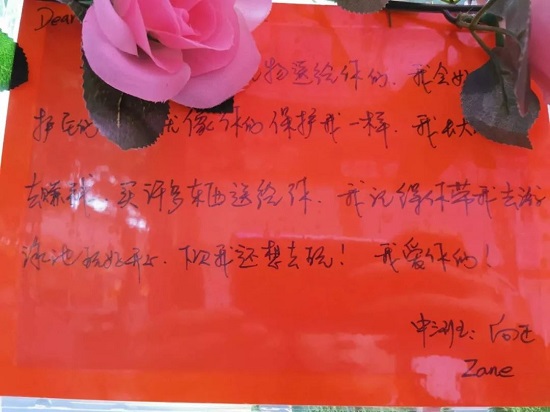 Dear
物送给你的, 我会好
护它 就像你的保护我一样, 我长大
去赚钱, 买许多东西送给你. 我记得你带我去游
泳池玩好开心, 下次我还想去玩! 我爱你的!
中班: 向
Zane